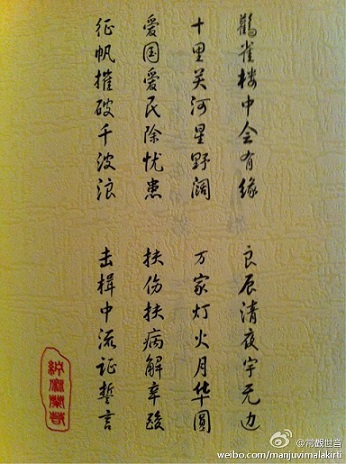 鹳雀楼中会有缘 良辰清夜宇无边
十里关河星野阔 万家灯火月华圆
爱国爱民除忧患 扶伤扶病解辛酸
征帆摧破千波浪 击楫中流证誓言
@常觀世音
weibo.com/manjuvimalakirti